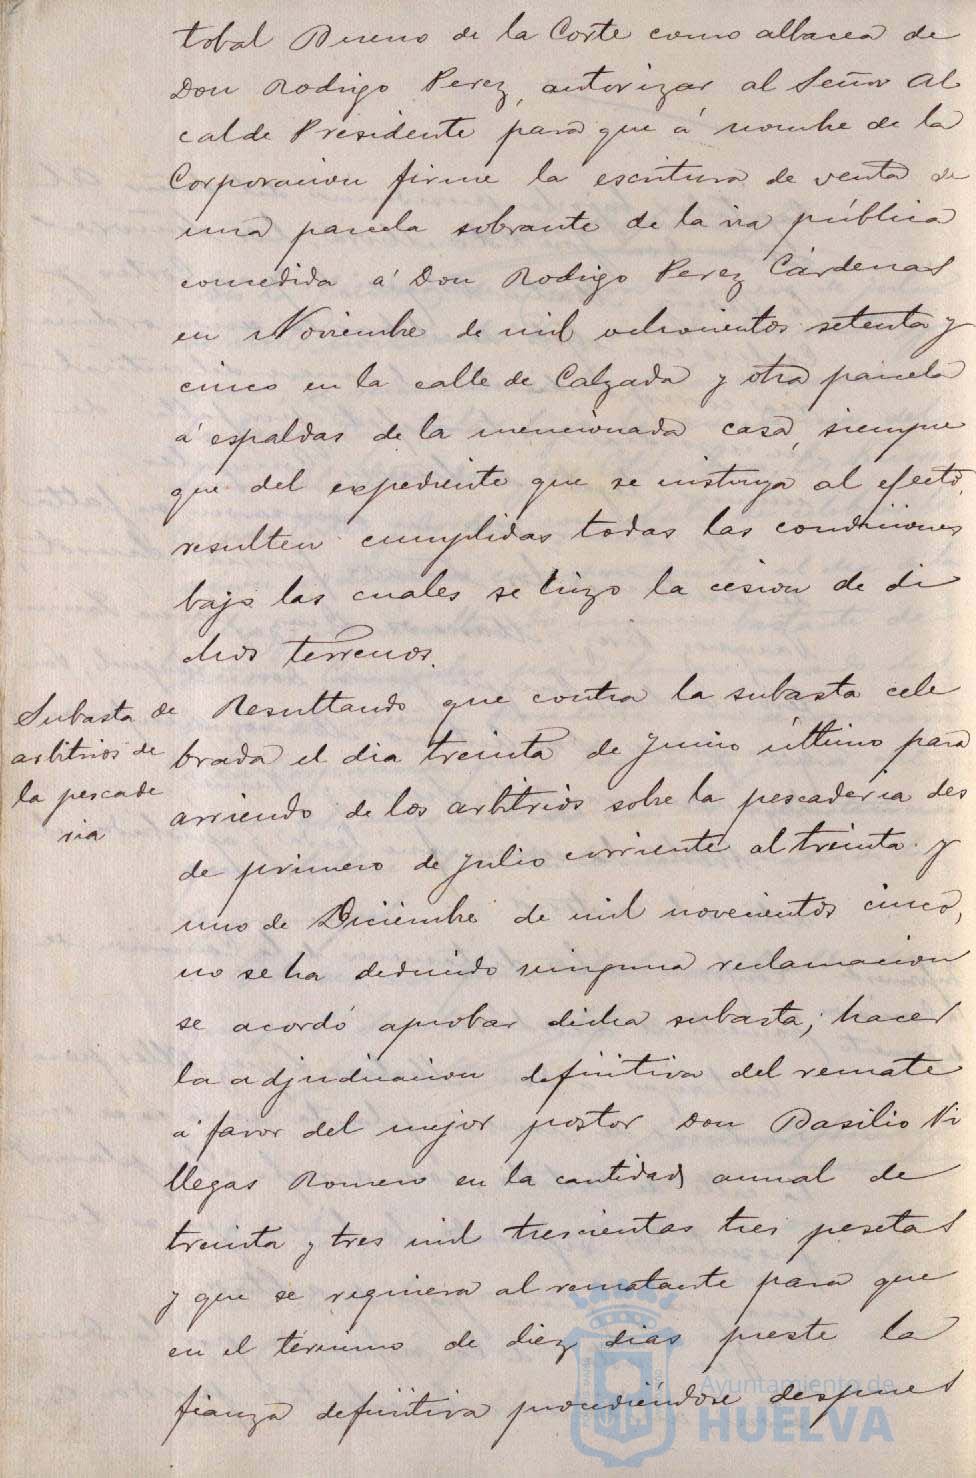 tobal Bueno de la Corte como albacea de
Don Rodrigo Perez, autorizar al Señor Al
calde Presidente para que á nombre de la
Corporacion firme la escritura de venta de
una parcela sobrante de la via pública
concedida á Don Rodrigo Perez Cárdenas
en Noviembre de mil ochocientos setenta y
cinco en la calle de Calzada y otra parcela
á espaldas de la mencionada casa, siempre
que del expediente que se instruya al efecto,
resulten cumplidas todas las condiciones
bajo las cuales se hizo la cesion de di
chos terrenos.
Subasta de
arbitrios de
la pescade
ria
Resultando que contra la subasta cele
brada el dia treinta de Junio último para
arriendo de los arbitrios sobre la pescaderia des
de primero de Julio corriente al treinta y
uno de Diciembre de mil novecientos cinco,
no se ha deducido ninguna reclamacion
se acordó aprobar dicha subasta; hacer
la adjudicacion definitiva del remate
á favor del mejor postor Don Basilio Vi
llegas Romero en la cantidad anual de
treinta y tres mil trescientas tres pesetas
y que se requiera al rematante para que
en el término de diez dias preste la
fianza definitiva procediéndose despues
Ayuntamiento de
HUELVA